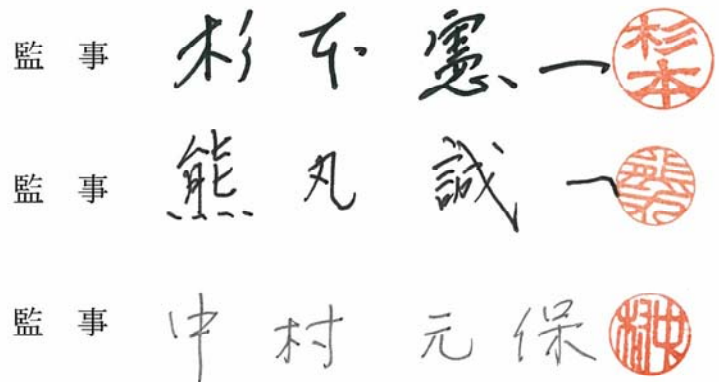 監 事 杉 本 憲 一 杉本
監 事 熊 丸 誠 一 熊丸
監 事 中 村 元 保 中村